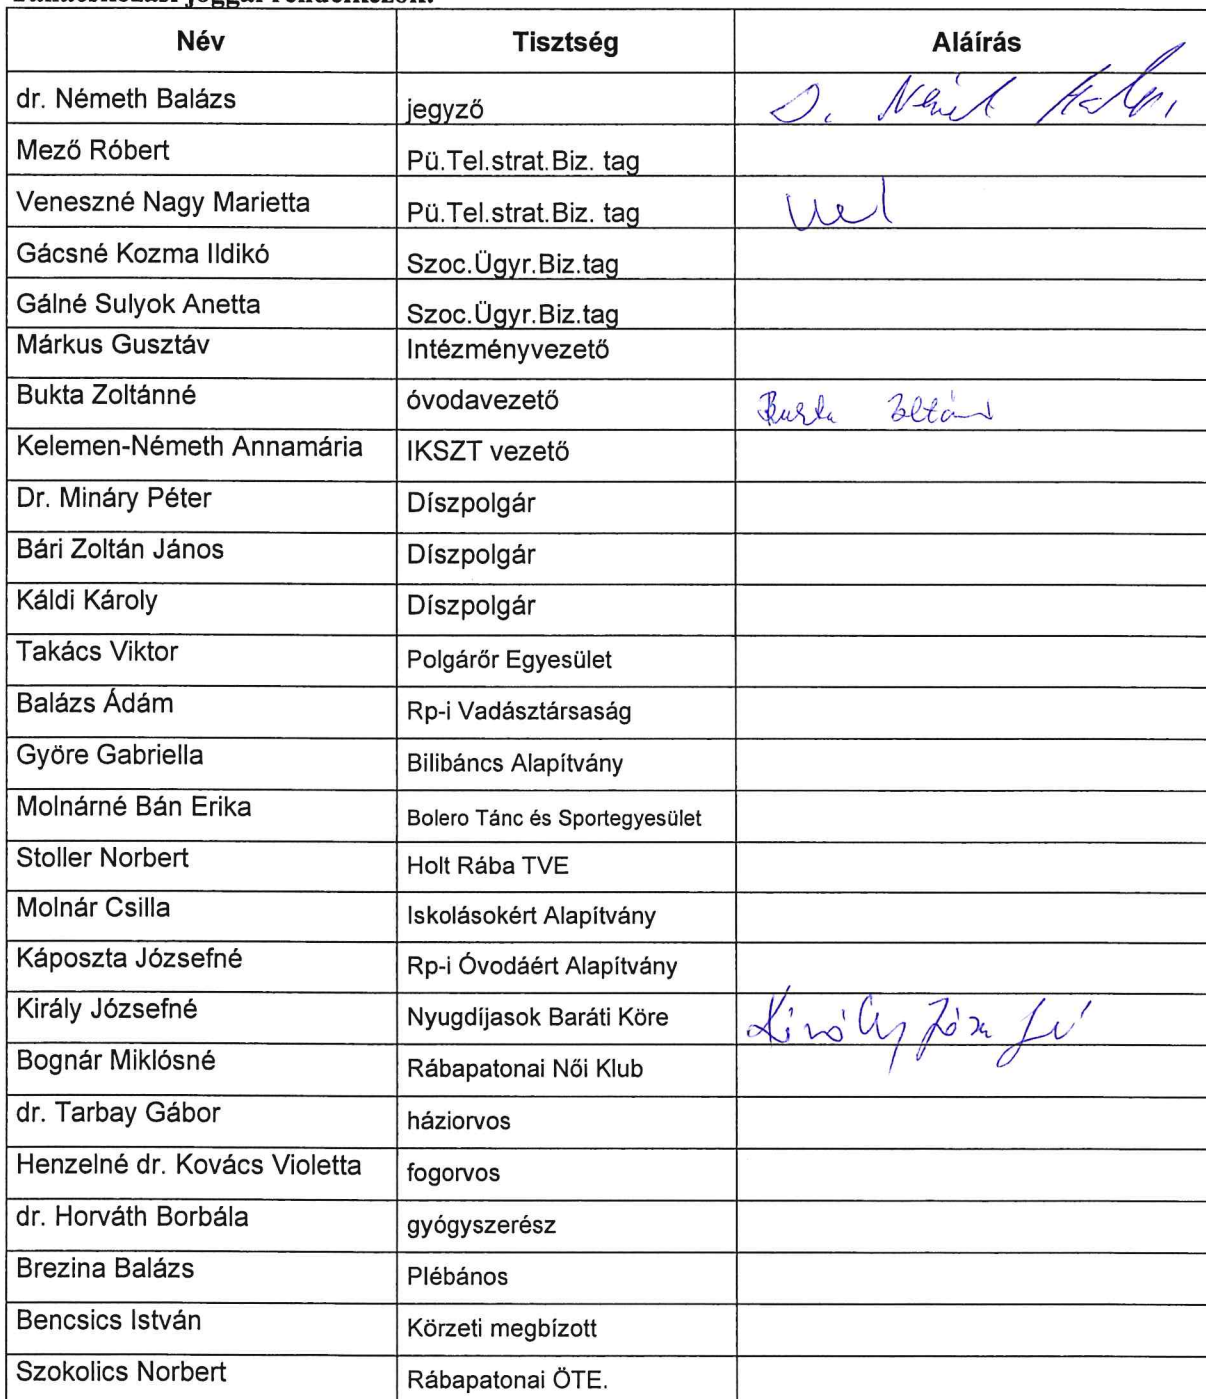 Tanácskozási joggal rendelkezők:
Név Tisztség Aláírás
dr. Németh Balázs jegyző
Mező Róbert Pü.Tel.strat.Biz. tag
Veneszné Nagy Marietta Pü.Tel.strat.Biz. tag
Gácsné Kozma Ildikó Szoc.Ügyr.Biz.tag
Gálné Sulyok Anetta Szoc.Ügyr.Biz.tag
Márkus Gusztáv Intézményvezető
Bukta Zoltánné óvodavezető
Kelemen-Németh Annamária IKSZT vezető
Dr. Mináry Péter Díszpolgár
Bári Zoltán János Díszpolgár
Káldi Károly Díszpolgár
Takács Viktor Polgárőr Egyesület
Balázs Ádám Rp-i Vadásztársaság
Györe Gabriella Bilibáncs Alapítvány
Molnárné Bán Erika Bolero Tánc és Sportegyesület
Stoller Norbert Holt Rába TVE
Molnár Csilla Iskolásokért Alapítvány
Káposzta Józsefné Rp-i Óvodáért Alapítvány
Király Józsefné Nyugdíjasok Baráti Köre
Bognár Miklósné Rábapatonai Női Klub
dr. Tarbay Gábor háziorvos
Henzelné dr. Kovács Violetta fogorvos
dr. Horváth Borbála gyógyszerész
Brezina Balázs Plébános
Bencsics István Körzeti megbízott
Szokolics Norbert Rábapatonai ÖTE.